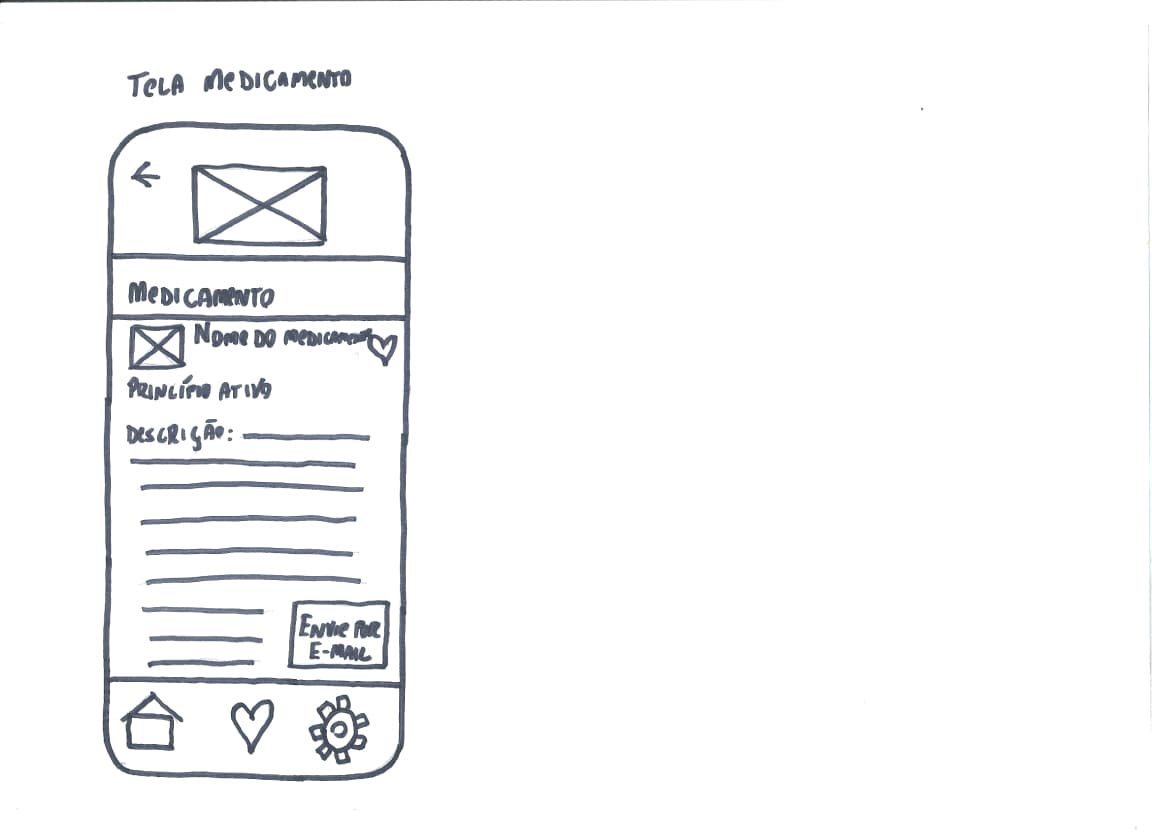 TELA MEDICAMENTO
MEDICAMENTO
NOME DO MEDICAMENTO
PRINCÍPIO ATIVO
DESCRIÇÃO:
ENVIE POR
E-MAIL